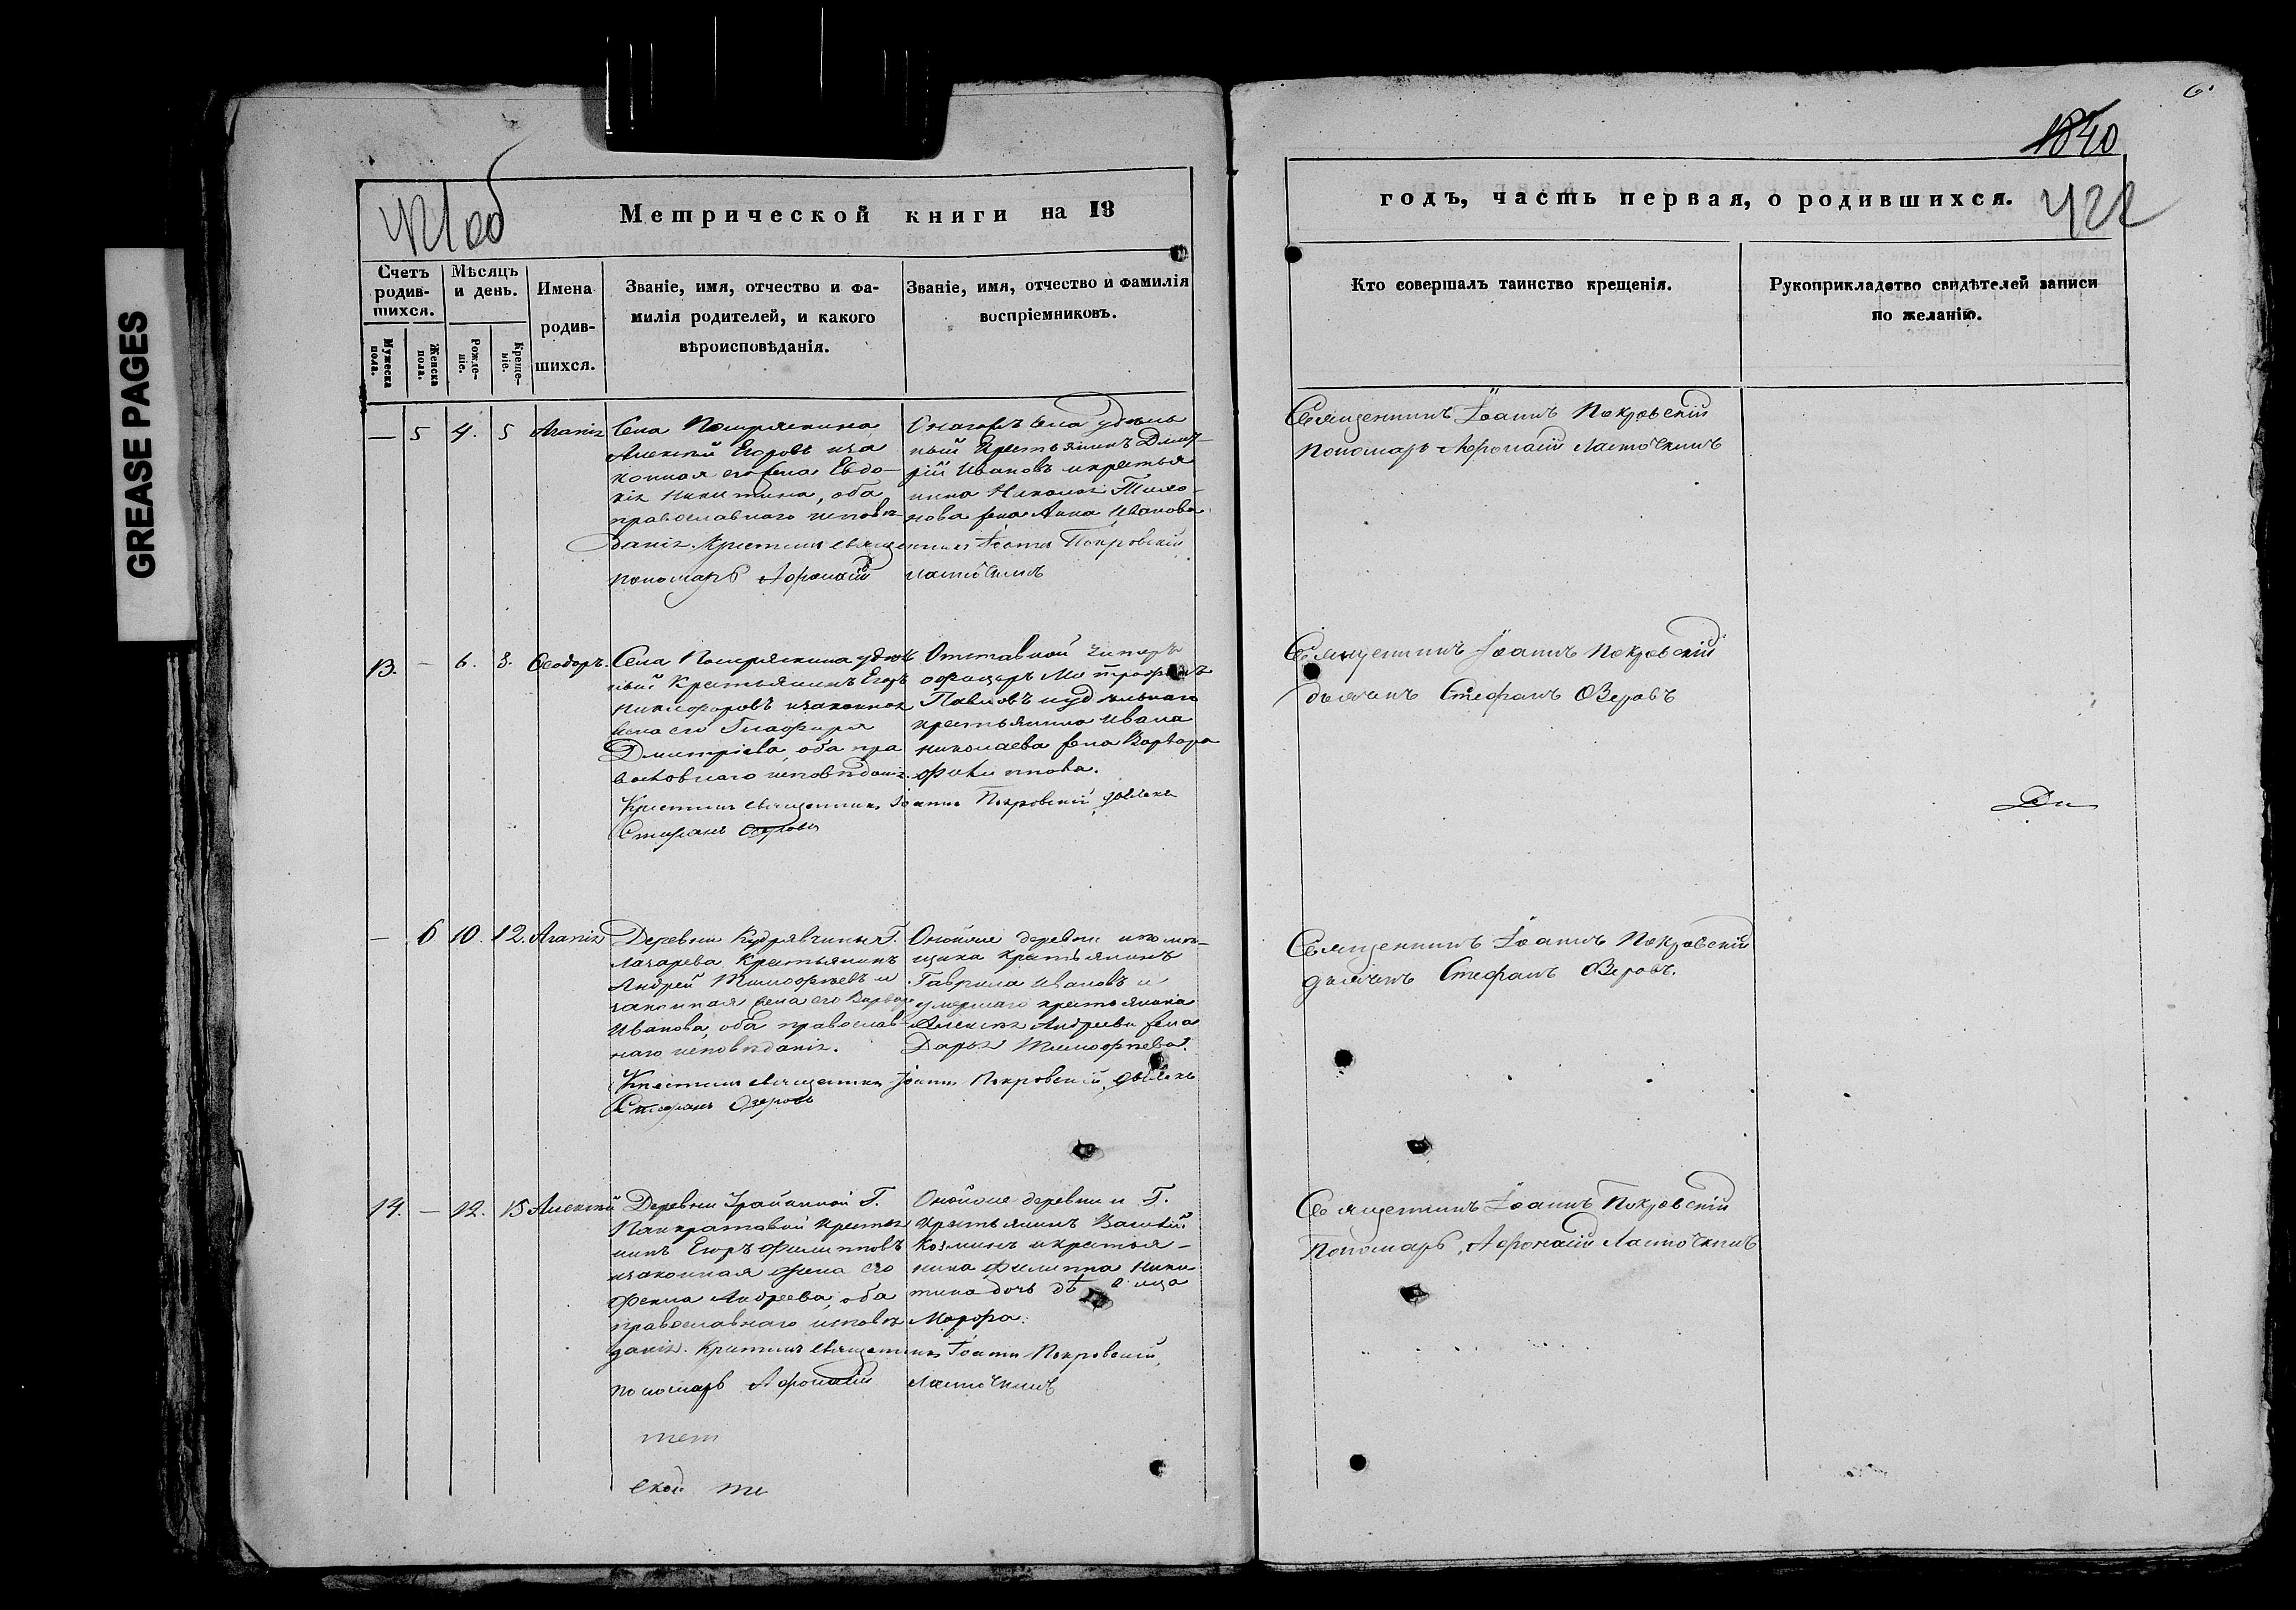 GREASE PAGES
421об
Метрической книги на 18
Счетъ родив- шихся.
Мѣсяцъ и день.
Имена родив- шихся.
Званіе, имя, отчество и фа-
милія родителей, и какого
вѣроисповѣданія.
Званіе, имя, отчество и фамилія
воспріемниковъ.
Мужеска пола.
Женска пола.
Рожде- ніе.
Креще- ніе.
— 5 4. 5 Агапія
Села
Алексій Егоровъ и за
конная его жена Евдо-
кія Никитина, оба
православнаго исповѣ-
данія. Крестилъ священникъ Іоаннъ Покровскій
пономарь Афонасій Ласточкинъ
Онагожъ села удѣль
ный Крестьянинъ Дмит-
рій Ивановъ и крестья
нина Николая
нова жена Анна Иванова
13. — 6. 8. Ѳеодоръ.
Села удѣль
ный Крестьянинъ Егоръ
Никифоровъ и законная
жена его Глафира
Дмитріева, оба пра
вословнаго исповѣданія.
Крестилъ священникъ Іоаннъ Покровскій, дьячекъ
Стефанъ Озеровъ
Отставной Унтеръ
офицеръ Митрофанъ
Павловъ и удѣльнаго
крестьянина Ивана
Николаева жена Варвара
Филиппова.
— 6 10. 12. Агапія
Деревни Кудрявчины Г.
Лазарева Крестьянинъ
Андрей Тимофѣевъ и
законная жена его Варвара
Иванова, оба православ-
наго исповѣданія.
Крестилъ священникъ Іоаннъ Покровскій, дьячекъ
Стефанъ Озеровъ
Оной же деревни и помѣ-
щика крестьянинъ
Гаврила Ивановъ и
умершаго крестьянина
Алексѣя Андреева жена
Дарья Тимофѣева.
14. — 12. 15 Алексій
Деревни Г.
Панкратовой крестья
нинъ Егоръ Филипповъ
и законная жена его
Фекла Андреева, оба
православнаго исповѣ
данія. Крестилъ священникъ Іоаннъ Покровскій,
пономарь Афонасій Ласточкинъ
Оной же деревни и Г.
крестьянинъ Василій
Козминъ и крестья-
нина Филиппа Ники
тина дочь дѣвица
Марфа.
1840
годъ, часть первая, о родившихся.
422
Кто совершалъ таинство крещенія.
Рукоприкладство свидѣтелей записи
по желанію.
Священникъ Іоаннъ Покровскій
Пономарь Афонасій Ласточкинъ
Священникъ Іоаннъ Покровскій
дьячекъ Стефанъ Озеровъ
Ди
Священникъ Іоаннъ Покровскій
дьячекъ Стефанъ Озеровъ.
Священникъ Іоаннъ Покровскій
Пономарь, Афонасій Ласточкинъ